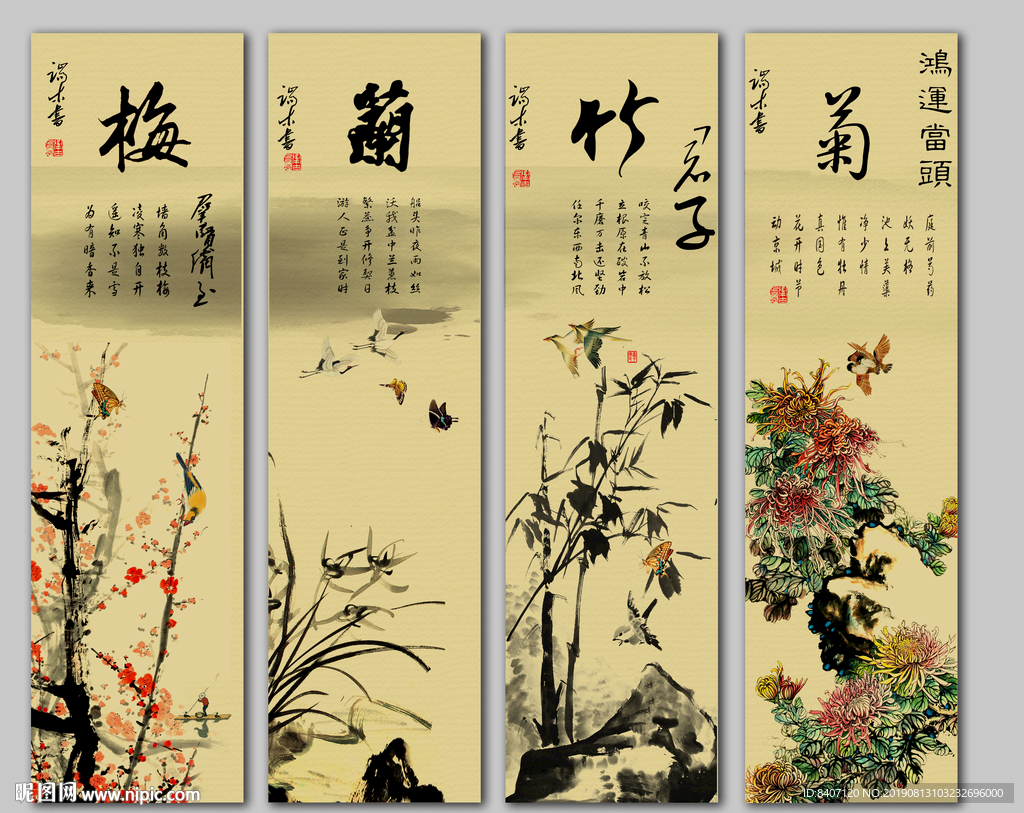 梅
墙角数枝梅
凌寒独自开
遥知不是雪
为有暗香来
蘭
船头昨夜雨如丝
沃我盆中兰蕙枝
繁蕊争开修禊日
游人正是到家时
竹
君子
咬定青山不放松
立根原在破岩中
千磨万击还坚劲
任尔东西南北风
菊
鸿運當頭
庭前芍药
妖无格
池上芙蕖
净少情
惟有牡丹
真国色
花开时节
动京城
昵图网 www.nipic.com
ID:8407120 NO:20190813103232696000